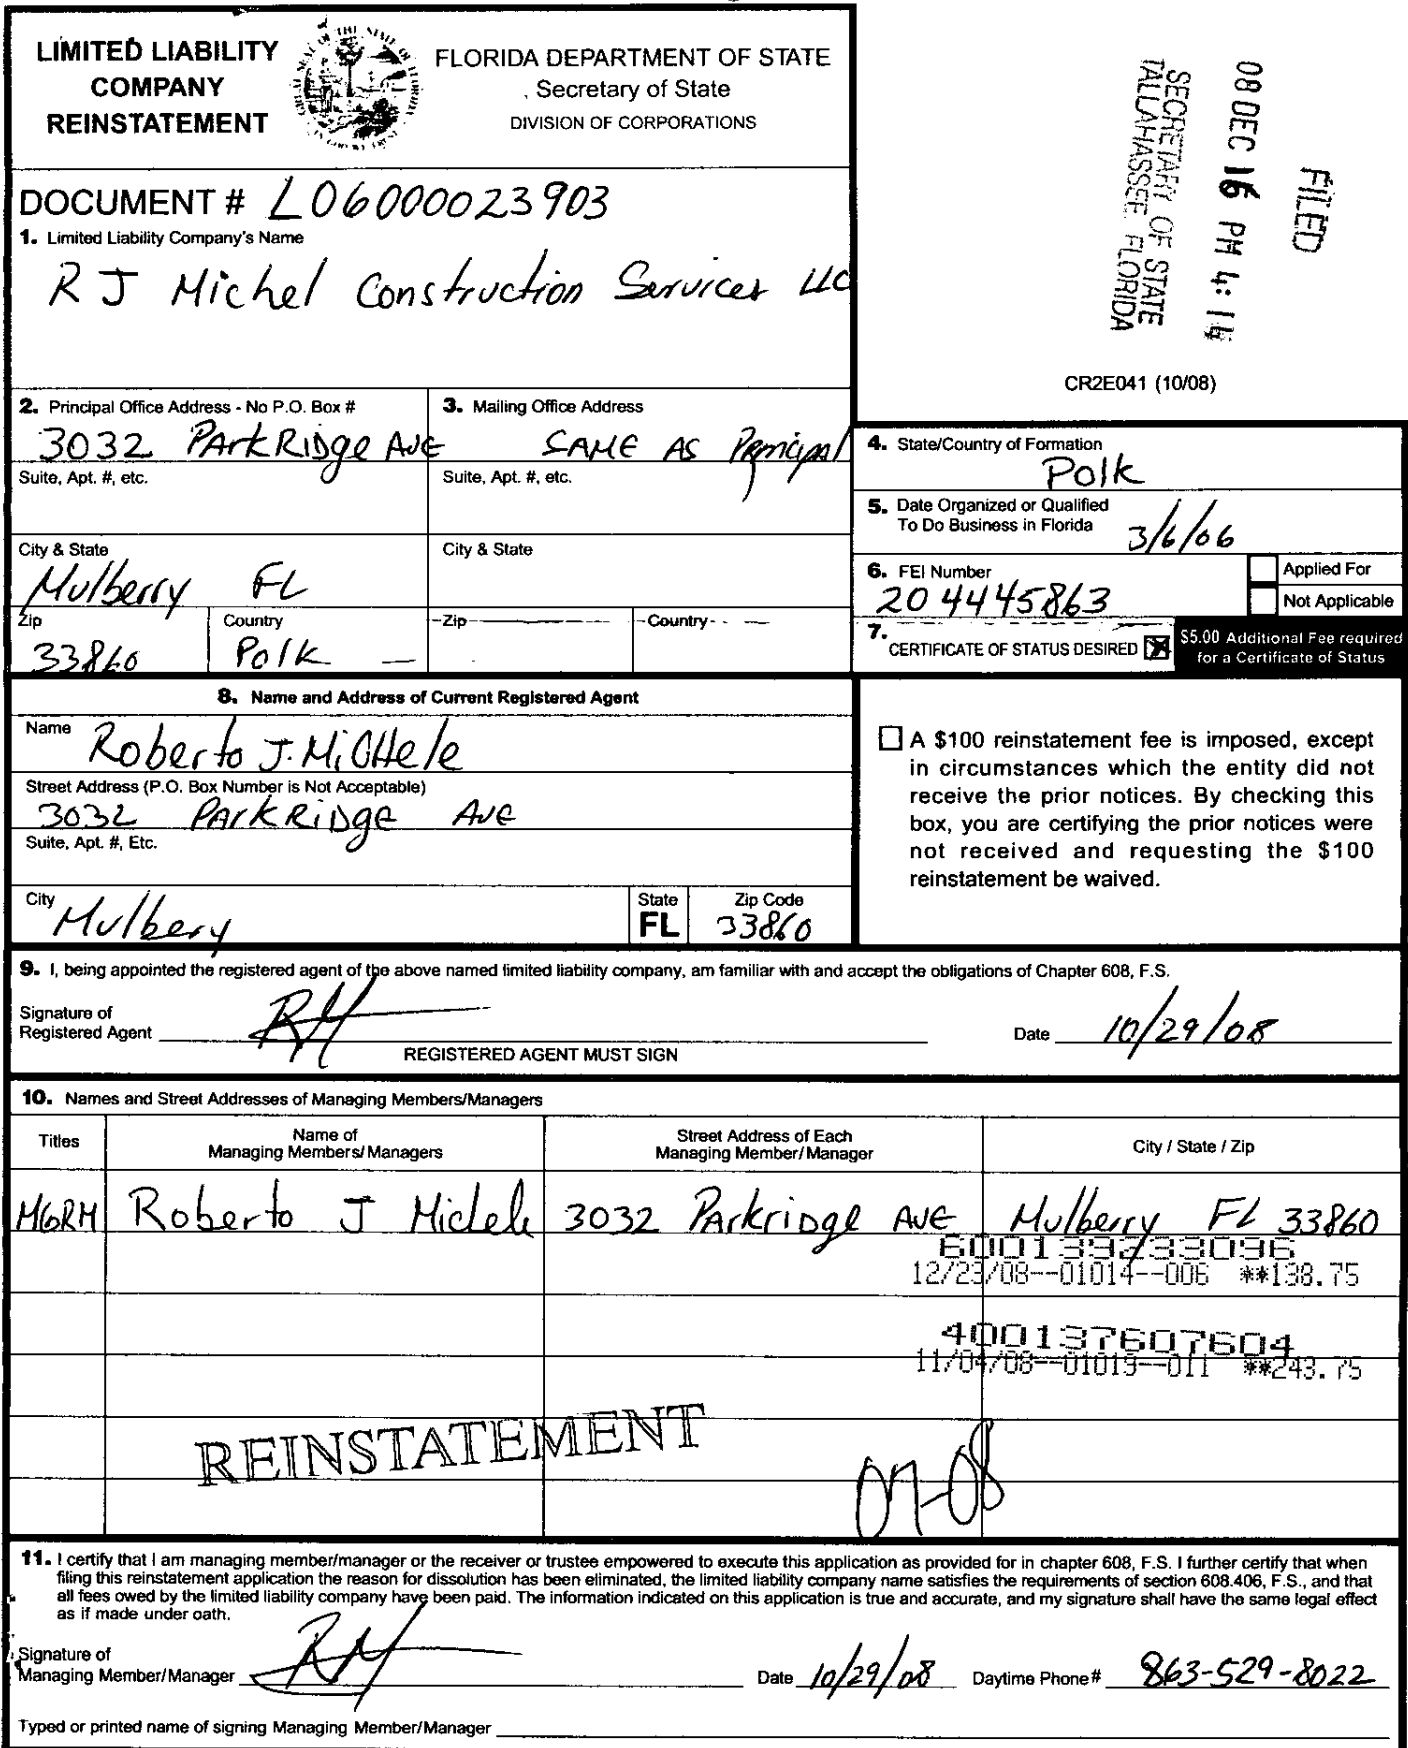 LIMITED LIABILITY
COMPANY
REINSTATEMENT
FLORIDA DEPARTMENT OF STATE
Secretary of State
DIVISION OF CORPORATIONS
FILED
08 DEC 16 PM 4:14
SECRETARY OF STATE
TALLAHASSEE FLORIDA
CR2E041 (10/08)
DOCUMENT # L06000023903
1. Limited Liability Company's Name
R J Michel Construction Services LLC
2. Principal Office Address - No P.O. Box #
3032 ParkRidge Ave
Suite, Apt. #, etc.
City & State
Mulberry FL
Zip
33860
Country
Polk
3. Mailing Office Address
SAME AS Principal
Suite, Apt. #, etc.
City & State
Zip
Country
4. State/Country of Formation
Polk
5. Date Organized or Qualified
To Do Business in Florida
3/6/06
6. FEI Number
204445863
Applied For
Not Applicable
7. CERTIFICATE OF STATUS DESIRED
$5.00 Additional Fee required
for a Certificate of Status
8. Name and Address of Current Registered Agent
Name
Roberto J. MicHele
Street Address (P.O. Box Number is Not Acceptable)
3032 ParkRidge Ave
Suite, Apt. #, Etc.
City
Mulbery
State
FL
Zip Code
33860
A $100 reinstatement fee is imposed, except
in circumstances which the entity did not
receive the prior notices. By checking this
box, you are certifying the prior notices were
not received and requesting the $100
reinstatement be waived.
9. I, being appointed the registered agent of the above named limited liability company, am familiar with and accept the obligations of Chapter 608, F.S.
Signature of
Registered Agent
REGISTERED AGENT MUST SIGN
Date 10/29/08
10. Names and Street Addresses of Managing Members/Managers
Titles
Name of
Managing Members/Managers
Street Address of Each
Managing Member/Manager
City / State / Zip
MGRM Roberto J Michele 3032 Parkridge Ave Mulberry FL 33860
600139233096
12/23/08--01014--006 **138.75
400137607604
11/04/08--01019--011 **243.75
REINSTATEMENT
07-08
11. I certify that I am managing member/manager or the receiver or trustee empowered to execute this application as provided for in chapter 608, F.S. I further certify that when
filing this reinstatement application the reason for dissolution has been eliminated, the limited liability company name satisfies the requirements of section 608.406, F.S., and that
all fees owed by the limited liability company have been paid. The information indicated on this application is true and accurate, and my signature shall have the same legal effect
as if made under oath.
Signature of
Managing Member/Manager
Date 10/29/08 Daytime Phone # 863-529-8022
Typed or printed name of signing Managing Member/Manager